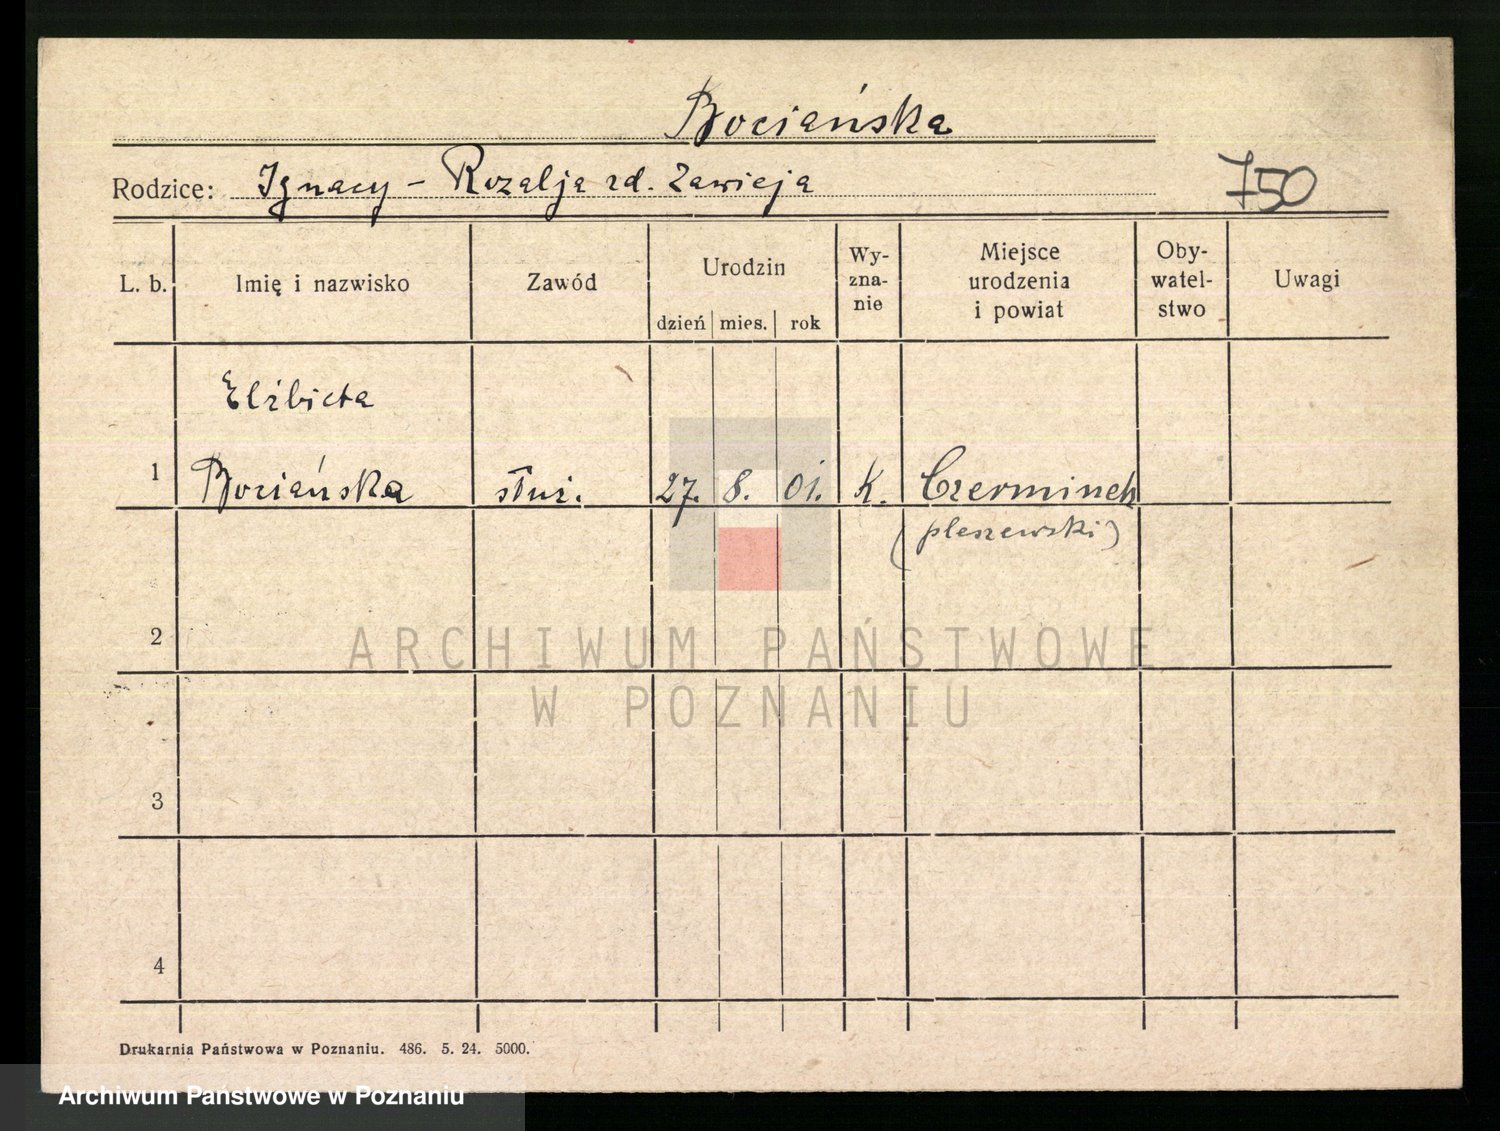 Bociańska
Rodzice: Ignacy – Rozalja zd. Zawieja
750
L. b. Imię i nazwisko Zawód Urodzin dzień mies. rok Wy-zna-nie Miejsce urodzenia i powiat Oby-watel-stwo Uwagi
Elżbieta
1 Bociańska służ. 27. 8. 01. K. Czerminek
(pleszewski)
2
ARCHIWUM PAŃSTWOWE
W POZNANIU
3
4
Drukarnia Państwowa w Poznaniu. 486. 5. 24. 5000.
Archiwum Państwowe w Poznaniu